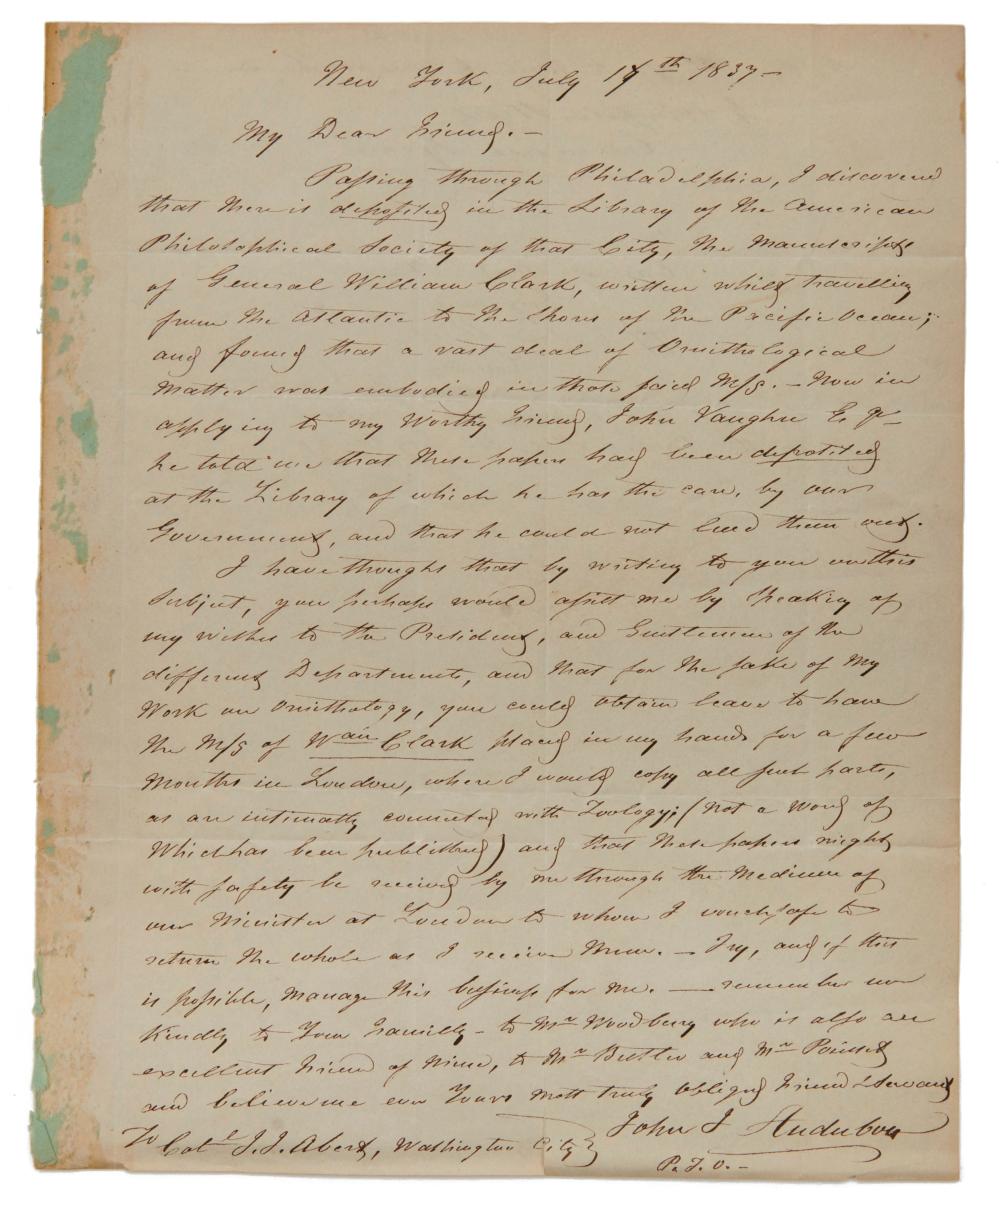 New York, July 17th 1837—
My Dear Friend.—
Passing through Philadelphia, I discovered
that there is deposited in the Library of the American
Philosophical Society of that City, the Manuscripts
of General William Clark, written whilst travelling
from the Atlantic to the Shores of the Pacific Ocean;
and found that a vast deal of Ornithological
Matter was embodied in those said M/s. — Now in
applying to my Worthy Friend, John Vaughn Esqr—
he told me that these papers had been deposited
at the Library of which he has the care, by our
Government, and that he could not lend them out.
I have thought that by writing to you on this
Subject, you perhaps would assist me by Speaking of
my wishes to the President, and Gentlemen of the
different Departments, and that for the sake of My
Work on Ornithology, you could obtain leave to have
the M/s of Wam Clark placed in my hands for a few
Months in London, where I would copy all such parts,
as are intimatly connected with Zoology; (not a Word of
Which has been published) and that these papers might
with safety be received by me through the Medium of
our Minister at London to whom I vouchsafe to
return the whole as I receive them. — Try, and if this
is possible, manage this business for me. — remember me
Kindly to Your Familly — to Mr Woodbury who is also an
excellent friend of Mine, to Mr Butler and Mr Poinsett
and believe me ever Yours Most truly obliged friend & Servant
John J Audubon
To Colel J. J. Abert, Washington City}
P. T. O. —